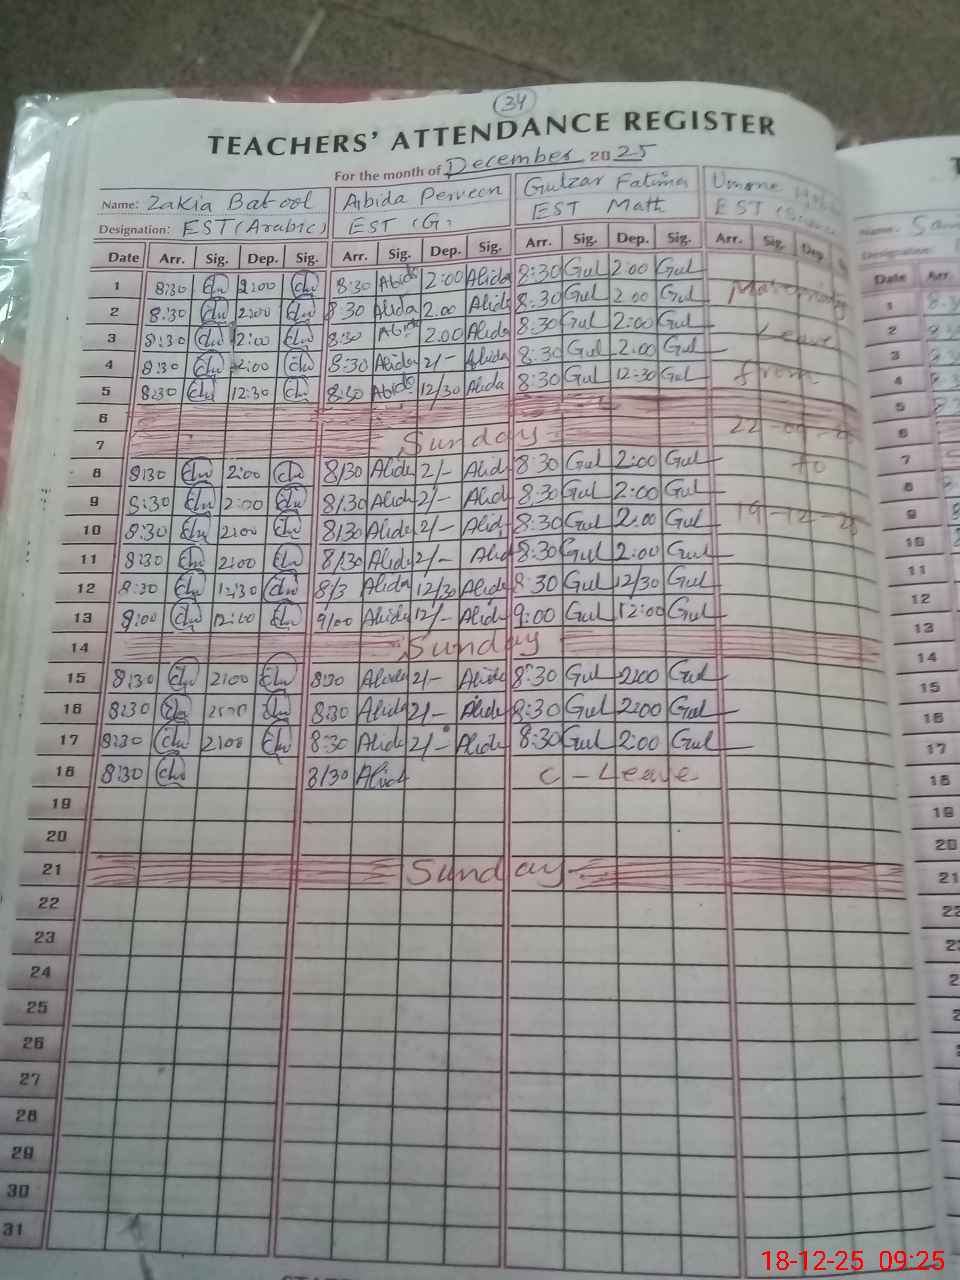 34
TEACHERS' ATTENDANCE REGISTER
For the month of December 2025
Name: Zakia Batool Abida Perveen Gulzar Fatima
Designation: EST (Arabic) EST (G) EST Math EST
Date Arr. Sig. Dep. Sig. Arr. Sig. Dep. Sig. Arr. Sig. Dep. Sig. Arr. Sig. Dep. Date Arr.
1 8:30 2:00 8:30 Abida 2:00 Alida 8:30 Gul 2:00 Gul 1
2 8:30 2:00 8:30 Alida 2.00 Alida 8:30 Gul 2.00 Gul Maternity 2
3 8:30 2:00 8:30 Abida 2.00 Alida 8:30 Gul 2:00 Gul Leave 3
4 8:30 2:00 8:30 Alida 2/- Alida 8:30 Gul 2:00 Gul from 4
5 8:30 12:30 8:30 Abida 12/30 Alida 8:30 Gul 12:30 Gul 5
6
7 Sunday 7
8 8:30 2:00 8/30 Alida 2/- Alida 8:30 Gul 2:00 Gul to 8
9 8:30 2:00 8/30 Alida 2/- Alida 8:30 Gul 2:00 Gul 19-12-25 9
10 8:30 2:00 8/30 Alida 2/- Alid 8:30 Gul 2.00 Gul 10
11 8:30 2:00 8/30 Alida 2/- Alid 8:30 Gul 2:00 Gul 11
12 8:30 12:30 8/3 Alida 12/30 Alida 8:30 Gul 12/30 Gul 12
13 9:00 12:00 9/00 Alida 12/- Alida 9:00 Gul 12:00 Gul 13
14 Sunday 14
15 8:30 2:00 8:30 Alida 2/- Alida 8:30 Gul 2:00 Gul 15
16 8:30 2:00 8:30 Alida 2/- Alida 8:30 Gul 2:00 Gul 16
17 8:30 2:00 8:30 Alida 2/- Alida 8:30 Gul 2:00 Gul 17
18 8:30 8/30 Alida C-Leave 18
19 19
20 20
21 Sunday 21
22
23
24
25
26
27
28
29
30
31
18-12-25 09:25